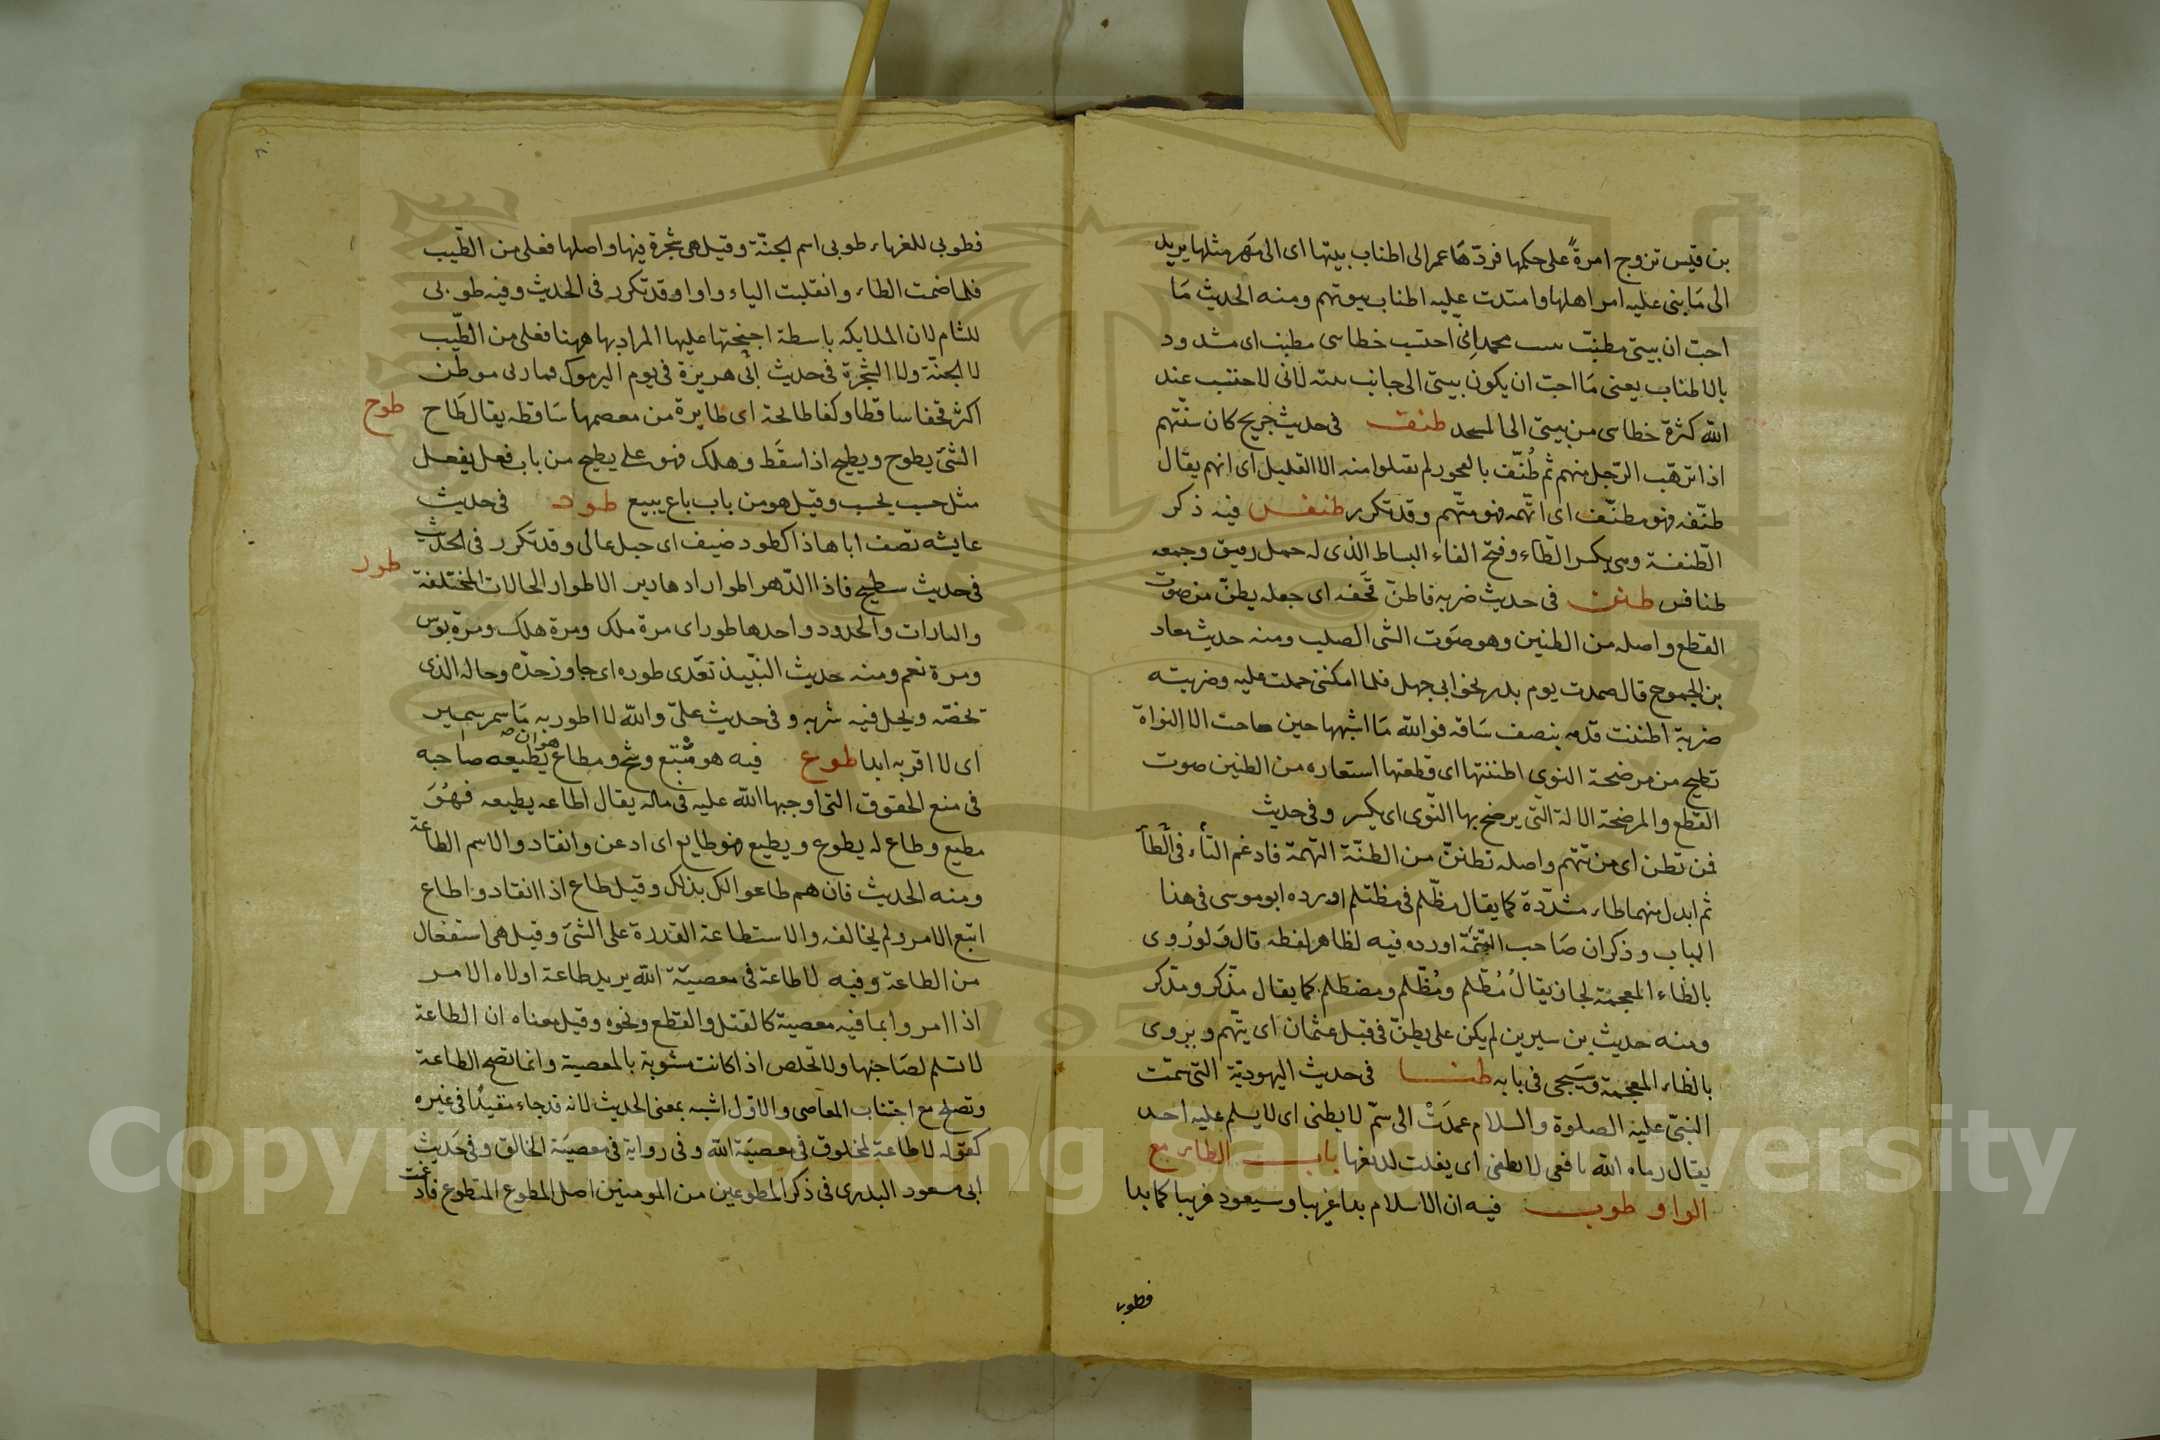 بن قيس تزوج امرةً على حكمها فردّها عمر الى اطناب بيتها اى الى مهر مثلها يريد
الى مَا بنى عليه امر اهلها وامتدت عليه اطناب بيوتهم ومنه الحديث مَا
احبّ ان بيتى مطنبّ ببيت محمد انى احتسب خطاى مطنب اى مشدود
بالاطناب يعنى مَا احبّ ان يكون بيتى الى جانب بيته لانى لاحتسب عند
الله كثرة خطاى من بيتى الى المسجد طنف فى حديث جريج كان سنّتهم
اذا ترهّب الرّجل منهم ثم طُنّف بالفجور لم يقبلوا منه الا القليل اى اتهم يقال
طنّفه فهو مطنّف اى اتّهمه فهو متّهم وقد تكرر طنفس فيه ذكر
الطّنفسة وهى بكسر الطّاء وفتح الفاء البساط الذى له خمل رقيق وجمعه
طنافس طنن فى حديث ضربه فاطنّ قحفه اى جعله يطنّ من صوت
القطع واصله من الطنين وهو صَوت الشى الصلب ومنه حديث معاد
بن الجموح قال صمدت يوم بدر نحو ابى جهل فلما امكننى حملت عليه وضربته
ضربة اطننت قدمه بنصف سَاقه فوالله مَا اشبهها حين طاحت الا النواة
تطيح من مرضخة النوى اطننتها اى قطعتها استعاره من الطنين صوت
القطع والمرضخة الالة التى يرضخ بها النّوى اى يكسر وفى حديث
فمن تطن اى من تتهم واصله تطنن من الطنّة التهمة فادغم التاء فى الطاء
ثم ابدل منهما طاء مشدّدة كما يقال مطّلم فى مظتلم اورده ابو موسى فى هذا
الباب وذكر ان صَاحب التتمّة اورده فيه لظاهر لفظه قال وَلو رُوى
بالظاء المعجمة لجاز يقالُ مُطّلم ومُظّلم ومضطلم كما يقال مدّكر ومذّكر
ومنه حديث بن سيرين لم يكن على يطنّ فى قتل عثمان اى يتّهم ويروى
بالظاء المعجمة وسَيجى فى بابه طنا فى حديث اليهوديّة التى سمّت
النبىّ عليه الصلوة والسلام عمدَتْ الى سمّ لا يطنى اى لا يسلم عليه احد
يقال رماه الله بافعى لا تطنى اى يفلت لديغها باب الطاء مع
الواو طوب فيه ان الاسلام بدا غريبا وسيعود غريبا كما بدا
فطوبى
فطوبى للغرباء طوبى اسم الجنّة وقيل هى شجرة فيها واصلها فعلى من الطّيب
فلما ضمت الطاء وانقلبت الياء واوا وقد تكرر فى الحديث وفيه طوبى
للشام لان الملايكه باسطة اجنحتها عليها المراد بها ههنا فعلى من الطّيب
لا الجنّة ولا الشجرة فى حديث ابى هريرة فى يوم اليرموك فما رى موطن
اكثر قحفا ساقطا وكفا طائحة اى طايرة من معصمها سَاقطه يقال طَاح طوح
الشئ يطوح ويطيح اذا سقَط وهلك فهو على يطيح من باب فعل يفعل
مثل حسب يحسب وقيل هو من باب باع يبيع طود فى حديث
عايشه تصف اباها ذاك طود منيف اى جبل عالى وقد تكرر فى الحديث
فى حديث سطيح فاذا الدّهر اطوار ادهادير الاطوار الحالات المختلفة طور
والتارات والحدود واحدها طور اى مرة ملك ومرة هلك ومرة بوس
ومرة نعم ومنه حديث النّبيذ تعدّى طوره اى جاوز حدّه وحاله الذى
تخصّه ويحل فيه شربه وفى حديث علىّ والله لا اطور به مَا سمر سمير
اى لا اقربه ابدا طوع فيه هوى متّبع وشح ومطاع هو ان يطيعه صاحبه
فى منع الحقوق التى اوجبها الله عليه فى ماله يقال اطاعه يطيعه فهُوَ
مطيع وطاع له يطوع ويطيع فهو طايع اى ادعن وانقاد والاسم الطاعة
ومنه الحديث فان هم طاعوا لك بذلك وقيل طاع اذا انقاد واطاع
اتبع الامر ولم يخالفه والاستطاعة القدرة على الشئ وقيل هى استفعال
من الطاعة وفيه لا طاعة فى معصيّة الله يريد طاعة اولاه الامر
اذا امروا بما فيه معصية كالقتل والقطع ونحوه وقيل معناه ان الطاعة
لا تسلم لصَاحبها ولا تخلص اذا كانت مشوبة بالمعصية وانما تصح الطاعة
وتصلح مع اجتناب المعاصى والاوّل اشبه بمعنى الحديث لانه قد جاء مقيدًا فى غيره
كقوله لا طاعة لمخلوق فى معصيَة الله وفى رواية فى معصيَة الخالق وفى حَديث
ابى مسعود البدرى فى ذكر المطوعين من المومنين اصل المطوع المتطوع فادغمت